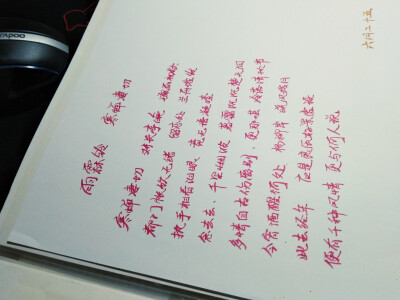 雨霖铃 寒蝉凄切
寒蝉凄切 对长亭晚 骤雨初歇
都门帐饮无绪 留恋处 兰舟催发
执手相看泪眼 竟无语凝噎
念去去、千里烟波 暮霭沉沉楚天阔
多情自古伤离别，更那堪 冷落清秋节
今宵酒醒何处 杨柳岸 晓风残月
此去经年 应是良辰好景虚设
便有千种风情 更与何人说
六月二十五